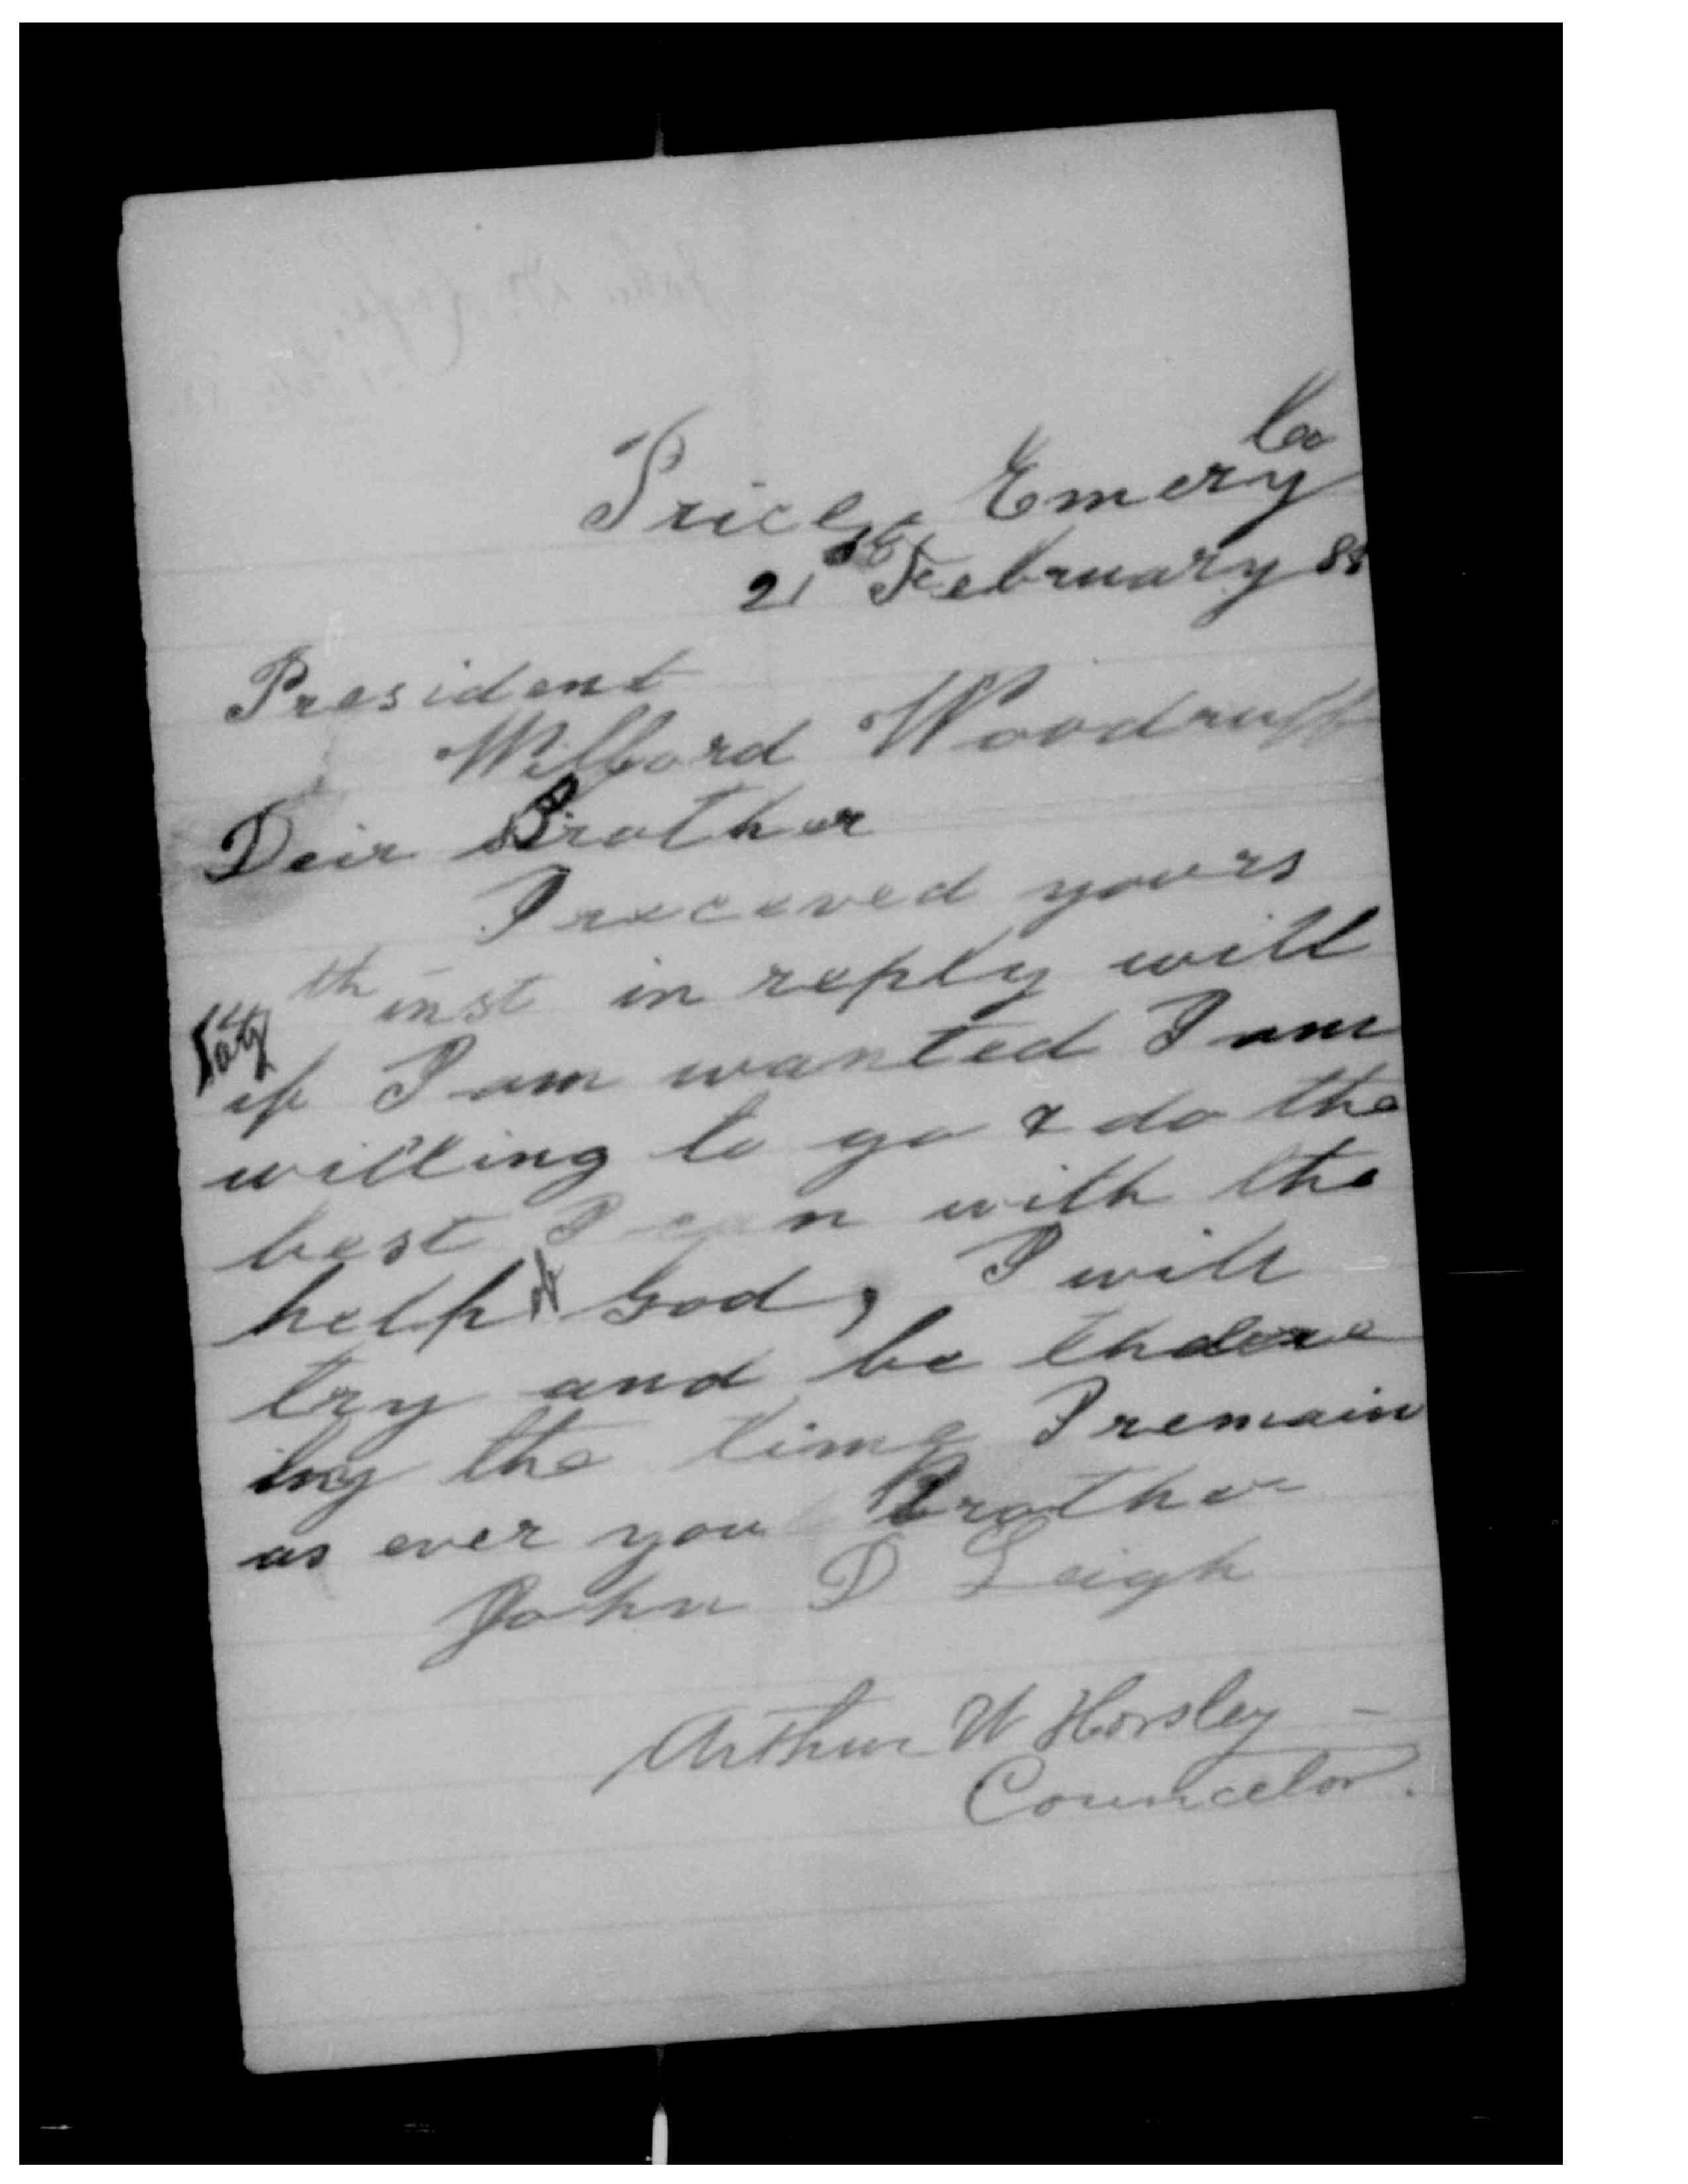 Price Emery Co
21st February 88
President
Wilford Woodruff
Deir Brother
I receved yours
th inst in reply will
Say if I am wanted I am
willing to go & do the
best I can with the
help of God, I will
try and be there
by the time I remain
as ever you Brother
John D Leigh
Arthur W Horsley
Councelor.